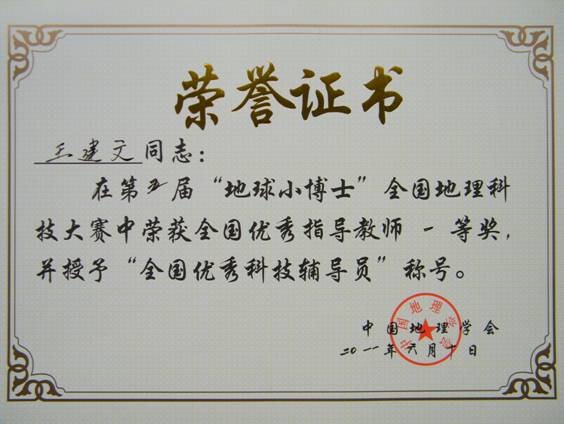 荣誉证书
王建文同志：
在第五届“地球小博士”全国地理科
技大赛中荣获全国优秀指导教师 一等奖，
并授予“全国优秀科技辅导员”称号。
中国地理学会
二〇一一年六月十日
中国地理学会